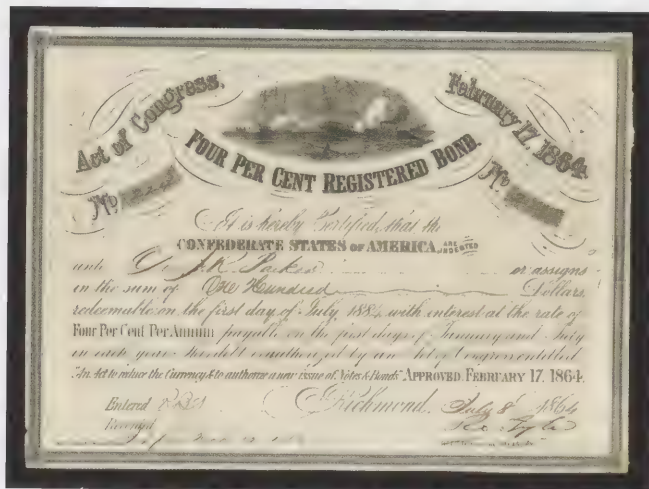 Act of Congress,
February 17, 1864.
FOUR PER CENT REGISTERED BOND.
No
No
It is hereby Certified, that the
CONFEDERATE STATES OF AMERICA, ARE INDEBTED
unto J.R. Parker or assigns
in the sum of One Hundred Dollars
redeemable on the first day of July 1884, with interest at the rate of
Four Per Cent Per Annum payable on the first days of January and July
in each year. This debt is authorized by an Act of Congress entitled
"An Act to reduce the Currency & to authorize a new issue of Notes & Bonds" APPROVED, FEBRUARY 17, 1864.
Entered
Richmond, July 8 1864
Recorded